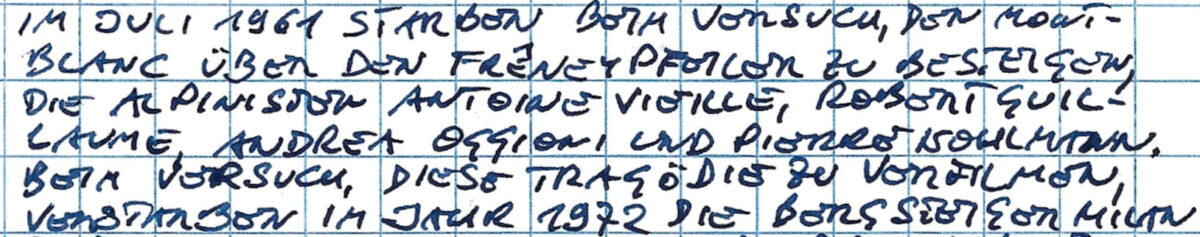 IM JULI 1961 STARBEN BEIM VERSUCH, DEN MONT-
BLANC ÜBER DEN FRÊNEYPFEILER ZU BESTEIGEN,
DIE ALPINISTEN ANTOINE VIEILLE, ROBERT GUIL-
LAUME, ANDREA OGGIONI UND PIERRE KOHLMANN.
BEIM VERSUCH, DIESE TRAGÖDIE ZU VERFILMEN,
VERSTARBEN IM JAHR 1972 DIE BERGSTEIGER MILAN